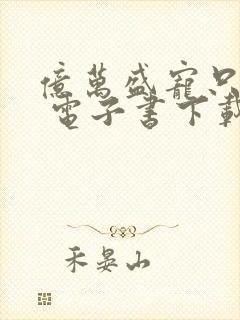 億萬盛寵只
電子書下載
禾晏山